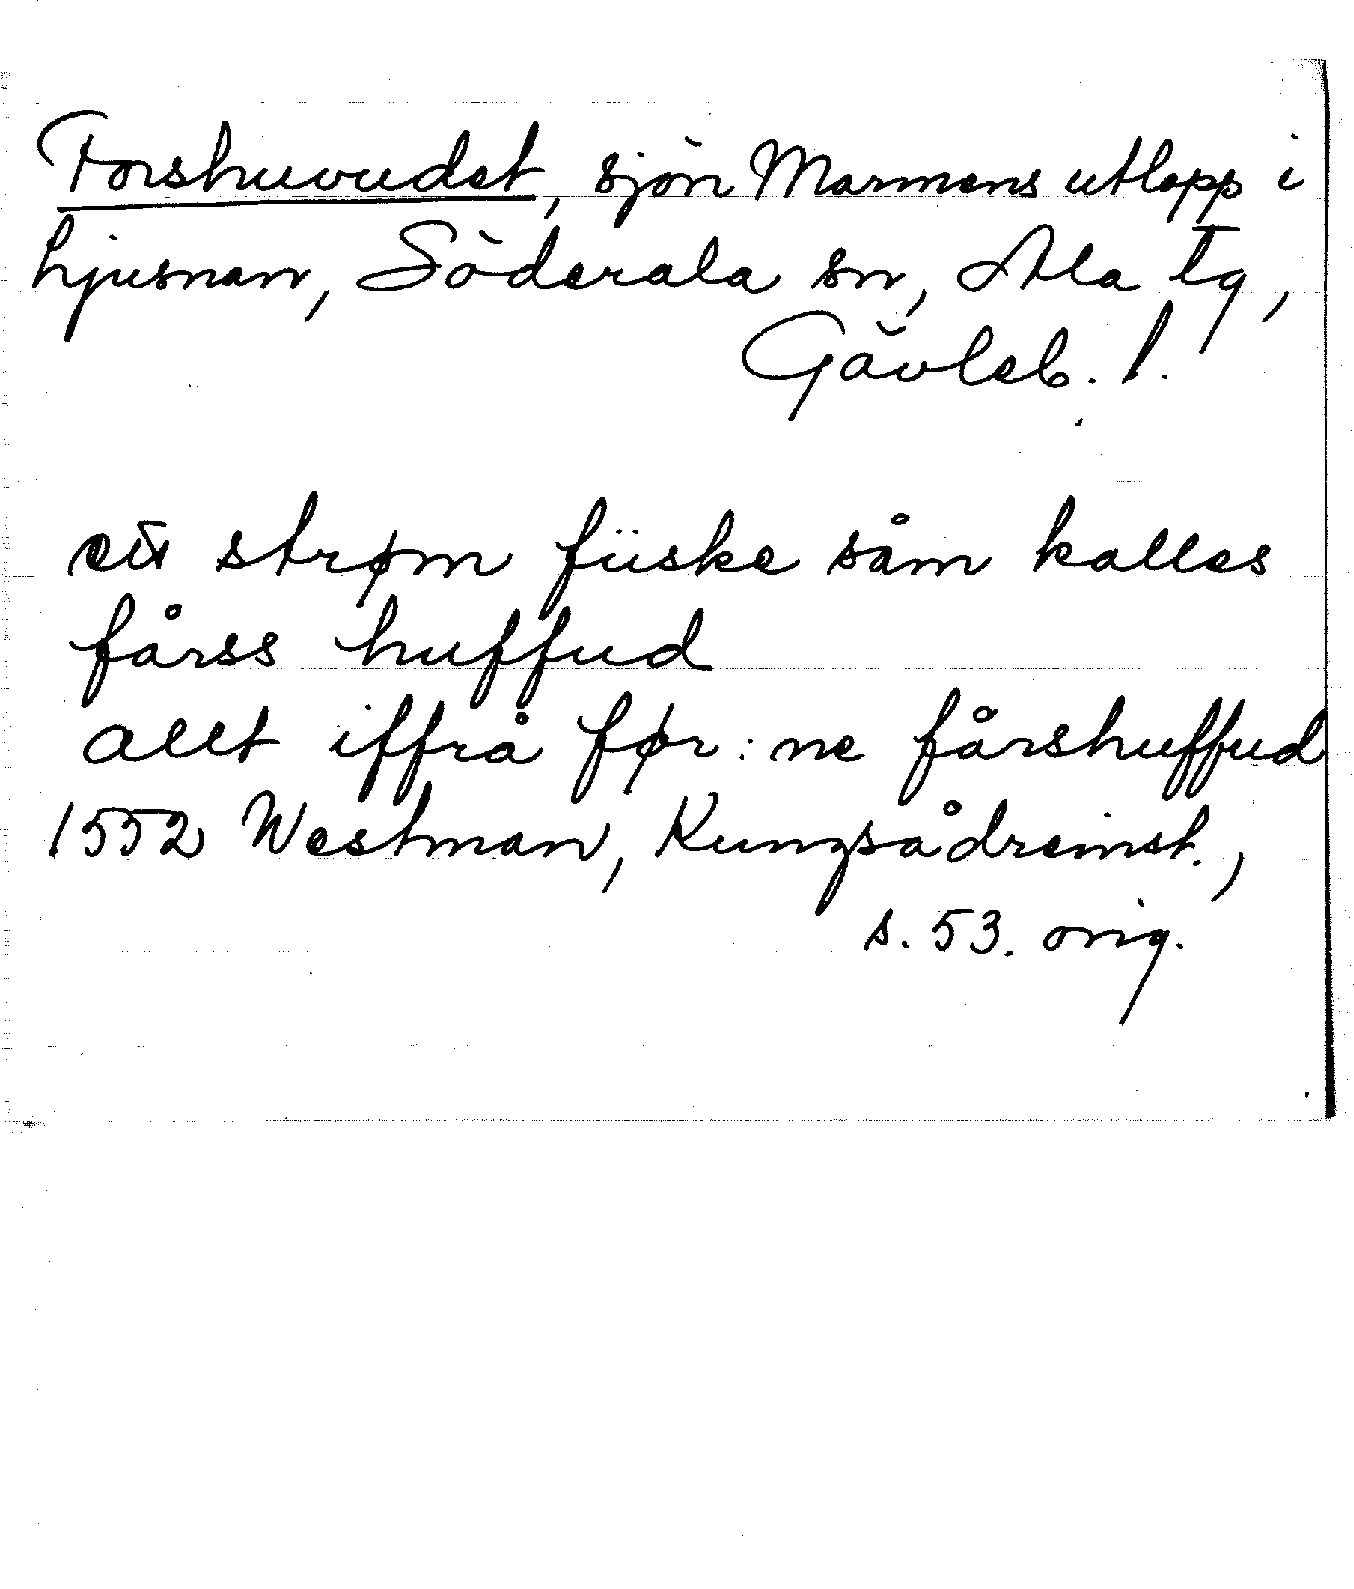 Forshuvudet, sjön Marmens utlopp i
Ljusnan, Söderala sn, Ala tg,
Gävleb. l.
ett strøm füske såm kalles
fårss huffud
allt iffrå før:ne fårshuffud
1552 Westman, Kungsådreinst.,
s. 53. orig.